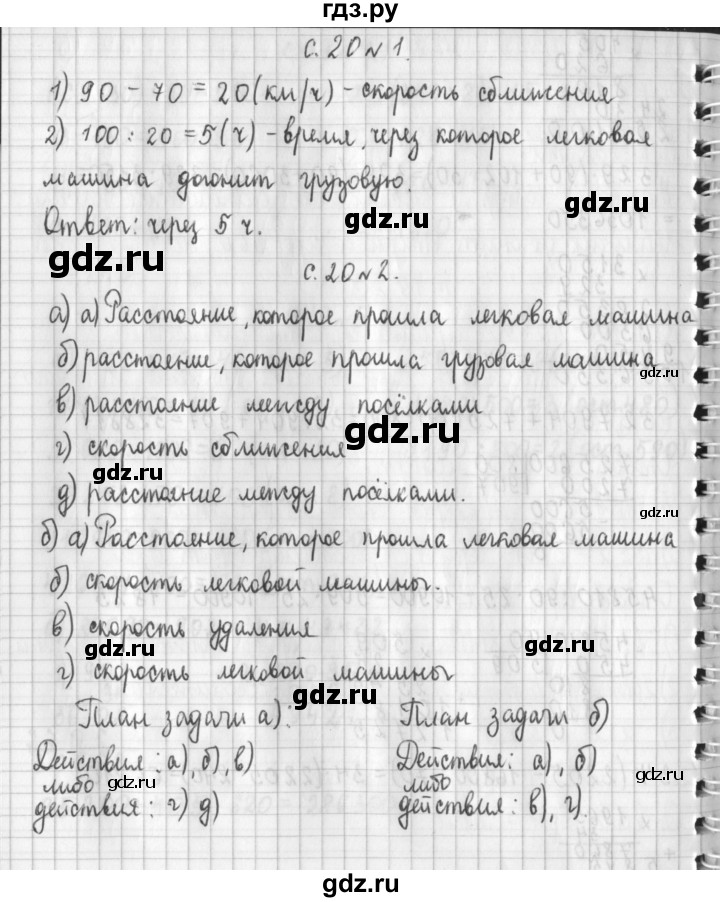 гдз.ру
с. 20 № 1.
1) 90 - 70 = 20 (км/ч) - скорость сближения
2) 100 : 20 = 5 (ч) - время, через которое легковая
машина догонит грузовую.
gdz.ru
Ответ: через 5 ч.
gdz.ru
gdz.ru
с. 20 № 2.
а) а) Расстояние, которое прошла легковая машина
б) расстояние, которое прошла грузовая машина
gdz.ru
в) расстояние между посёлками
gdz.ru
г) скорость сближения
gdz.ru
д) расстояние между посёлками.
gdz.ru
б) а) Расстояние, которое прошла легковая машина
б) скорость легковой машины.
в) скорость удаления
gdz.ru
gdz.ru
г) скорость легковой машины
gdz.ru
План задачи а):
План задачи б)
Действия: а), б), в)
либо
действия: г) д)
gdz.ru
Действия: а), б)
либо
действия: в), г).
gdz.ru
gdz.ru